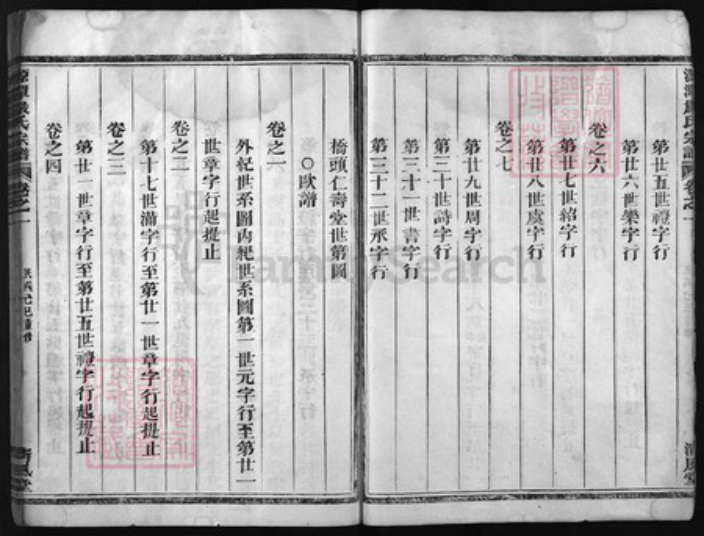 第廿五世禮字行
第廿六世樂字行
卷之六
第廿七世紹字行
第廿八世虞字行
卷之七
第廿九世周字行
第三十世詩字行
第三十一世書字行
第三十二世承字行
橋頭仁壽堂世第圖
○歐譜
卷之一
外紀世系圖內紀世系圖第一世元字行至第廿一
世章字行起提止
卷之二
第十七世滿字行至第廿一世章字行起提止
卷之三
第廿一世章字行至第廿五世禮字行起提止
卷之四
卷之一
清風堂
FamilySearch